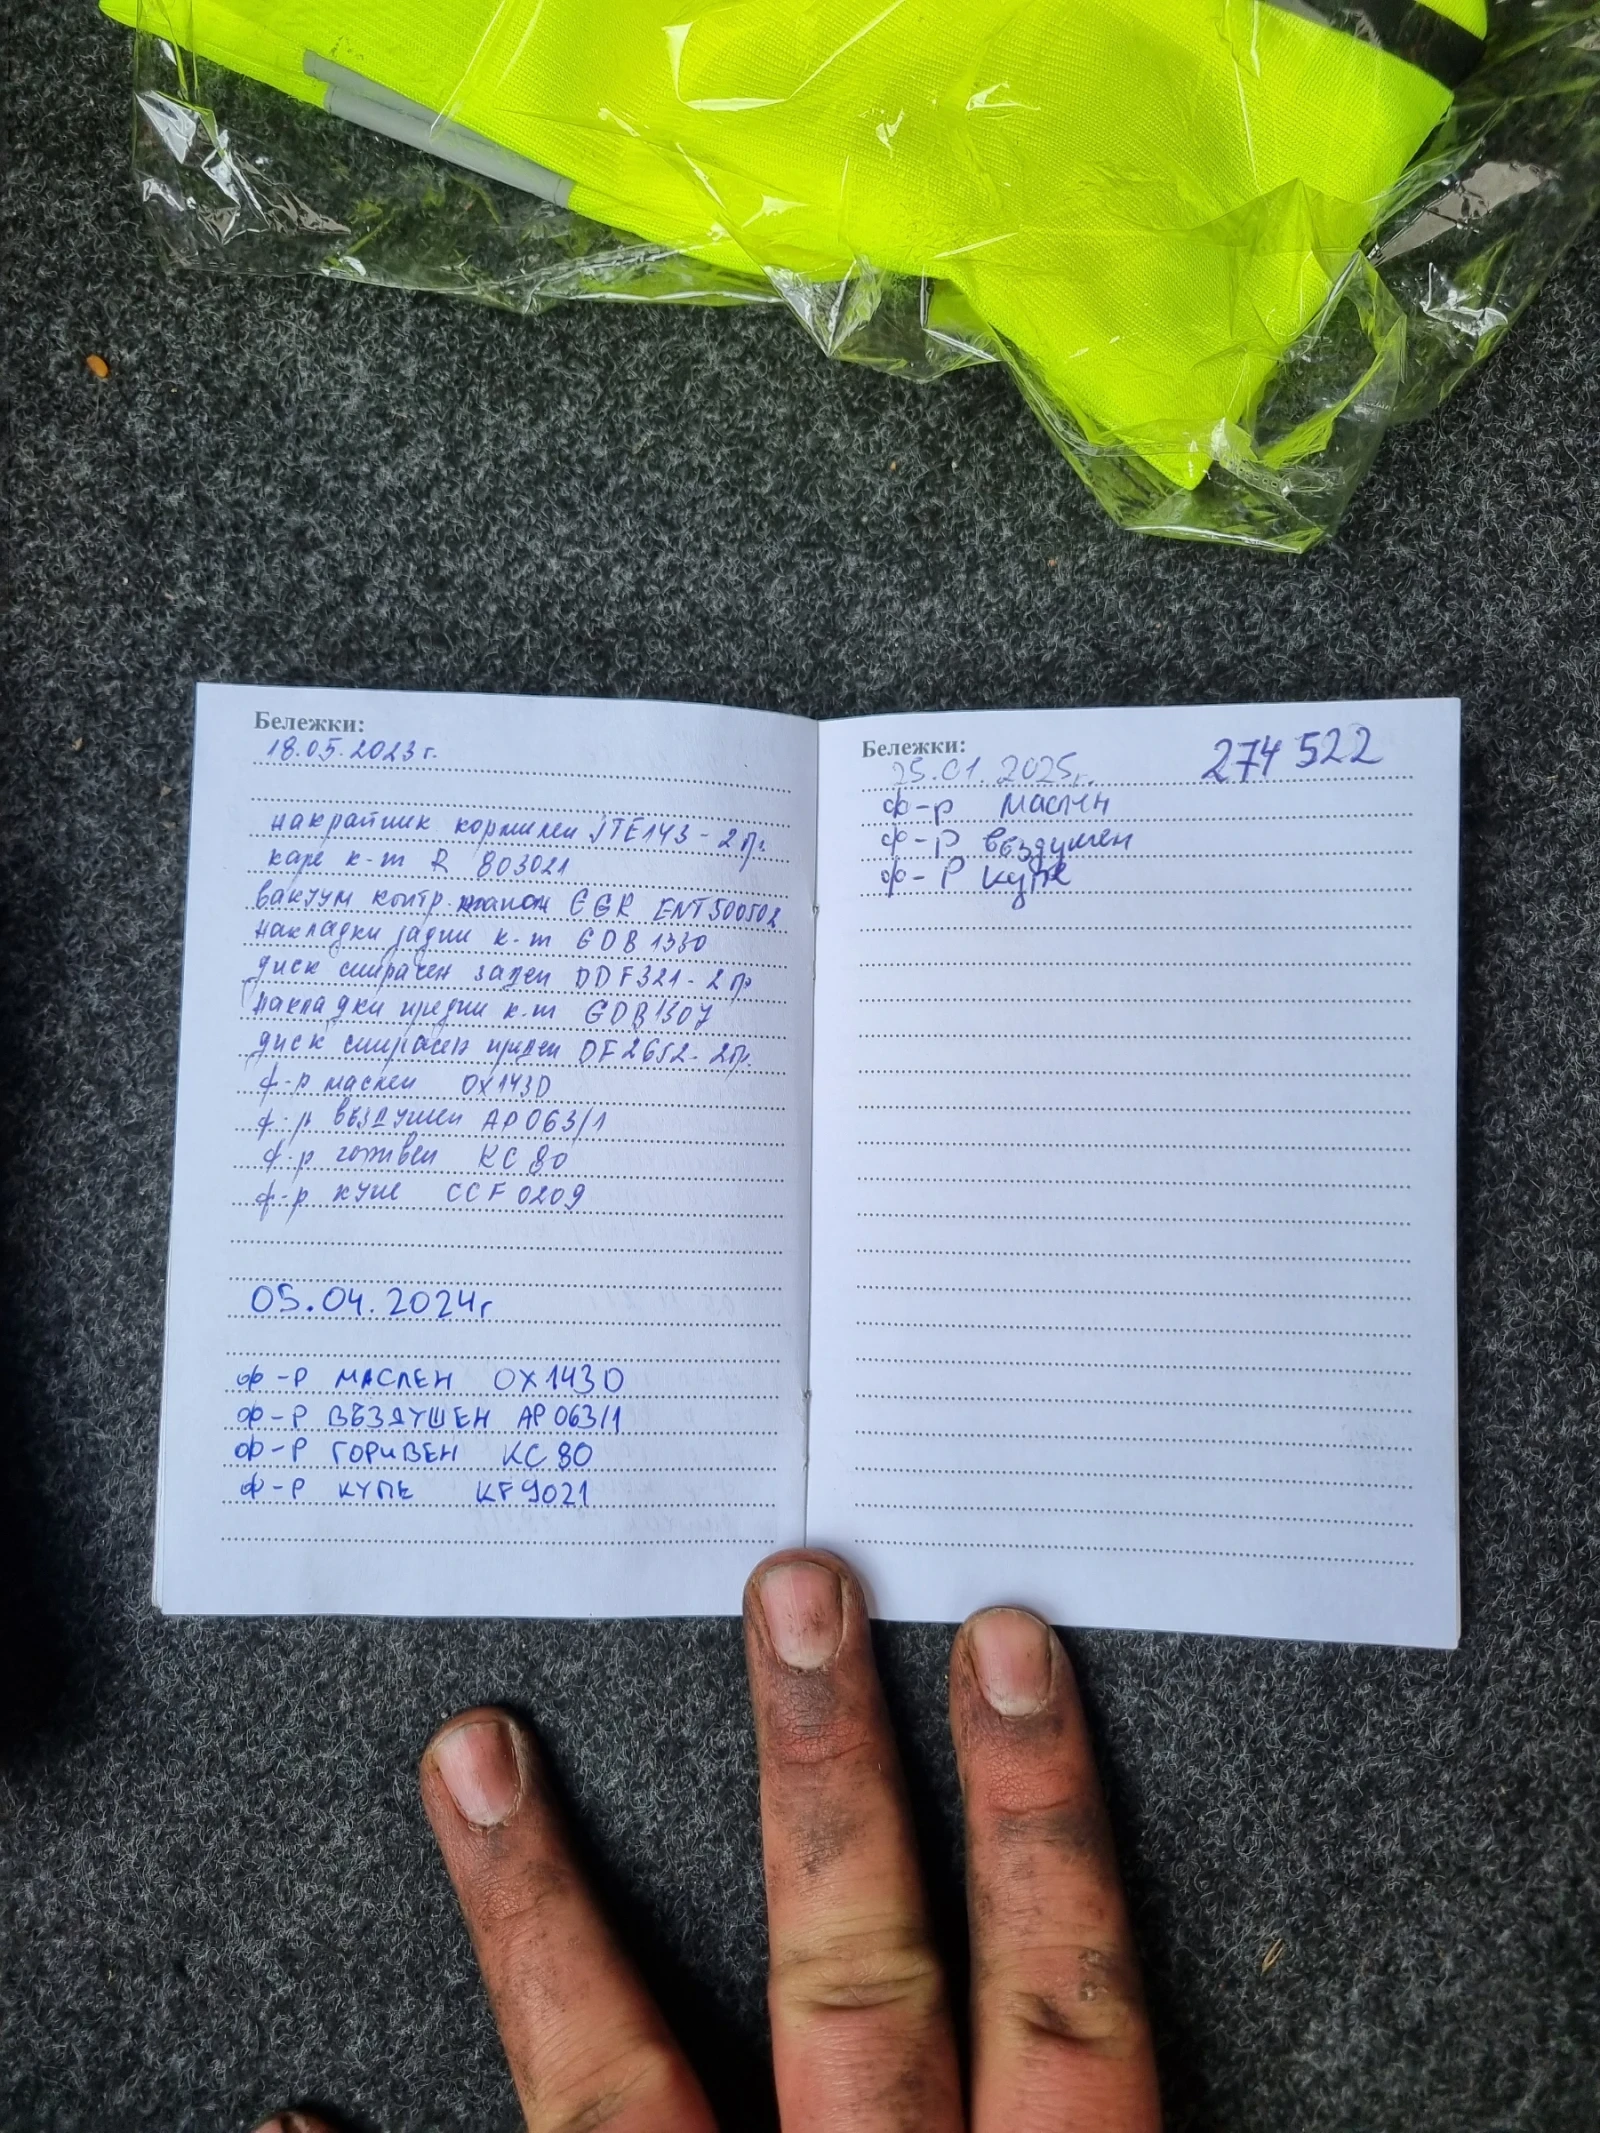 Бележки:
18.05.2023г.
накрайник кормилен JTE143 - 2бр.
каре к-т R 803021
вакуум контр. клапан EGR ENT500502
накладки задни к-т GDB1330
диск спирачен заден DDF321 - 2бр
накладки предни к-т GDB1307
диск спирачен преден DF2652 - 2бр.
ф-р маслен OX143D
ф-р въздушен AP063/1
ф-р горивен KC80
ф-р купе CCF0209
05.04.2024г
ф-р МАСЛЕН OX143D
ф-р ВЪЗДУШЕН AP063/1
ф-р ГОРИВЕН KC80
ф-р КУПЕ KF9021
Бележки:
25.01.2025г. 274 522
ф-р маслен
ф-р въздушен
ф-р купе